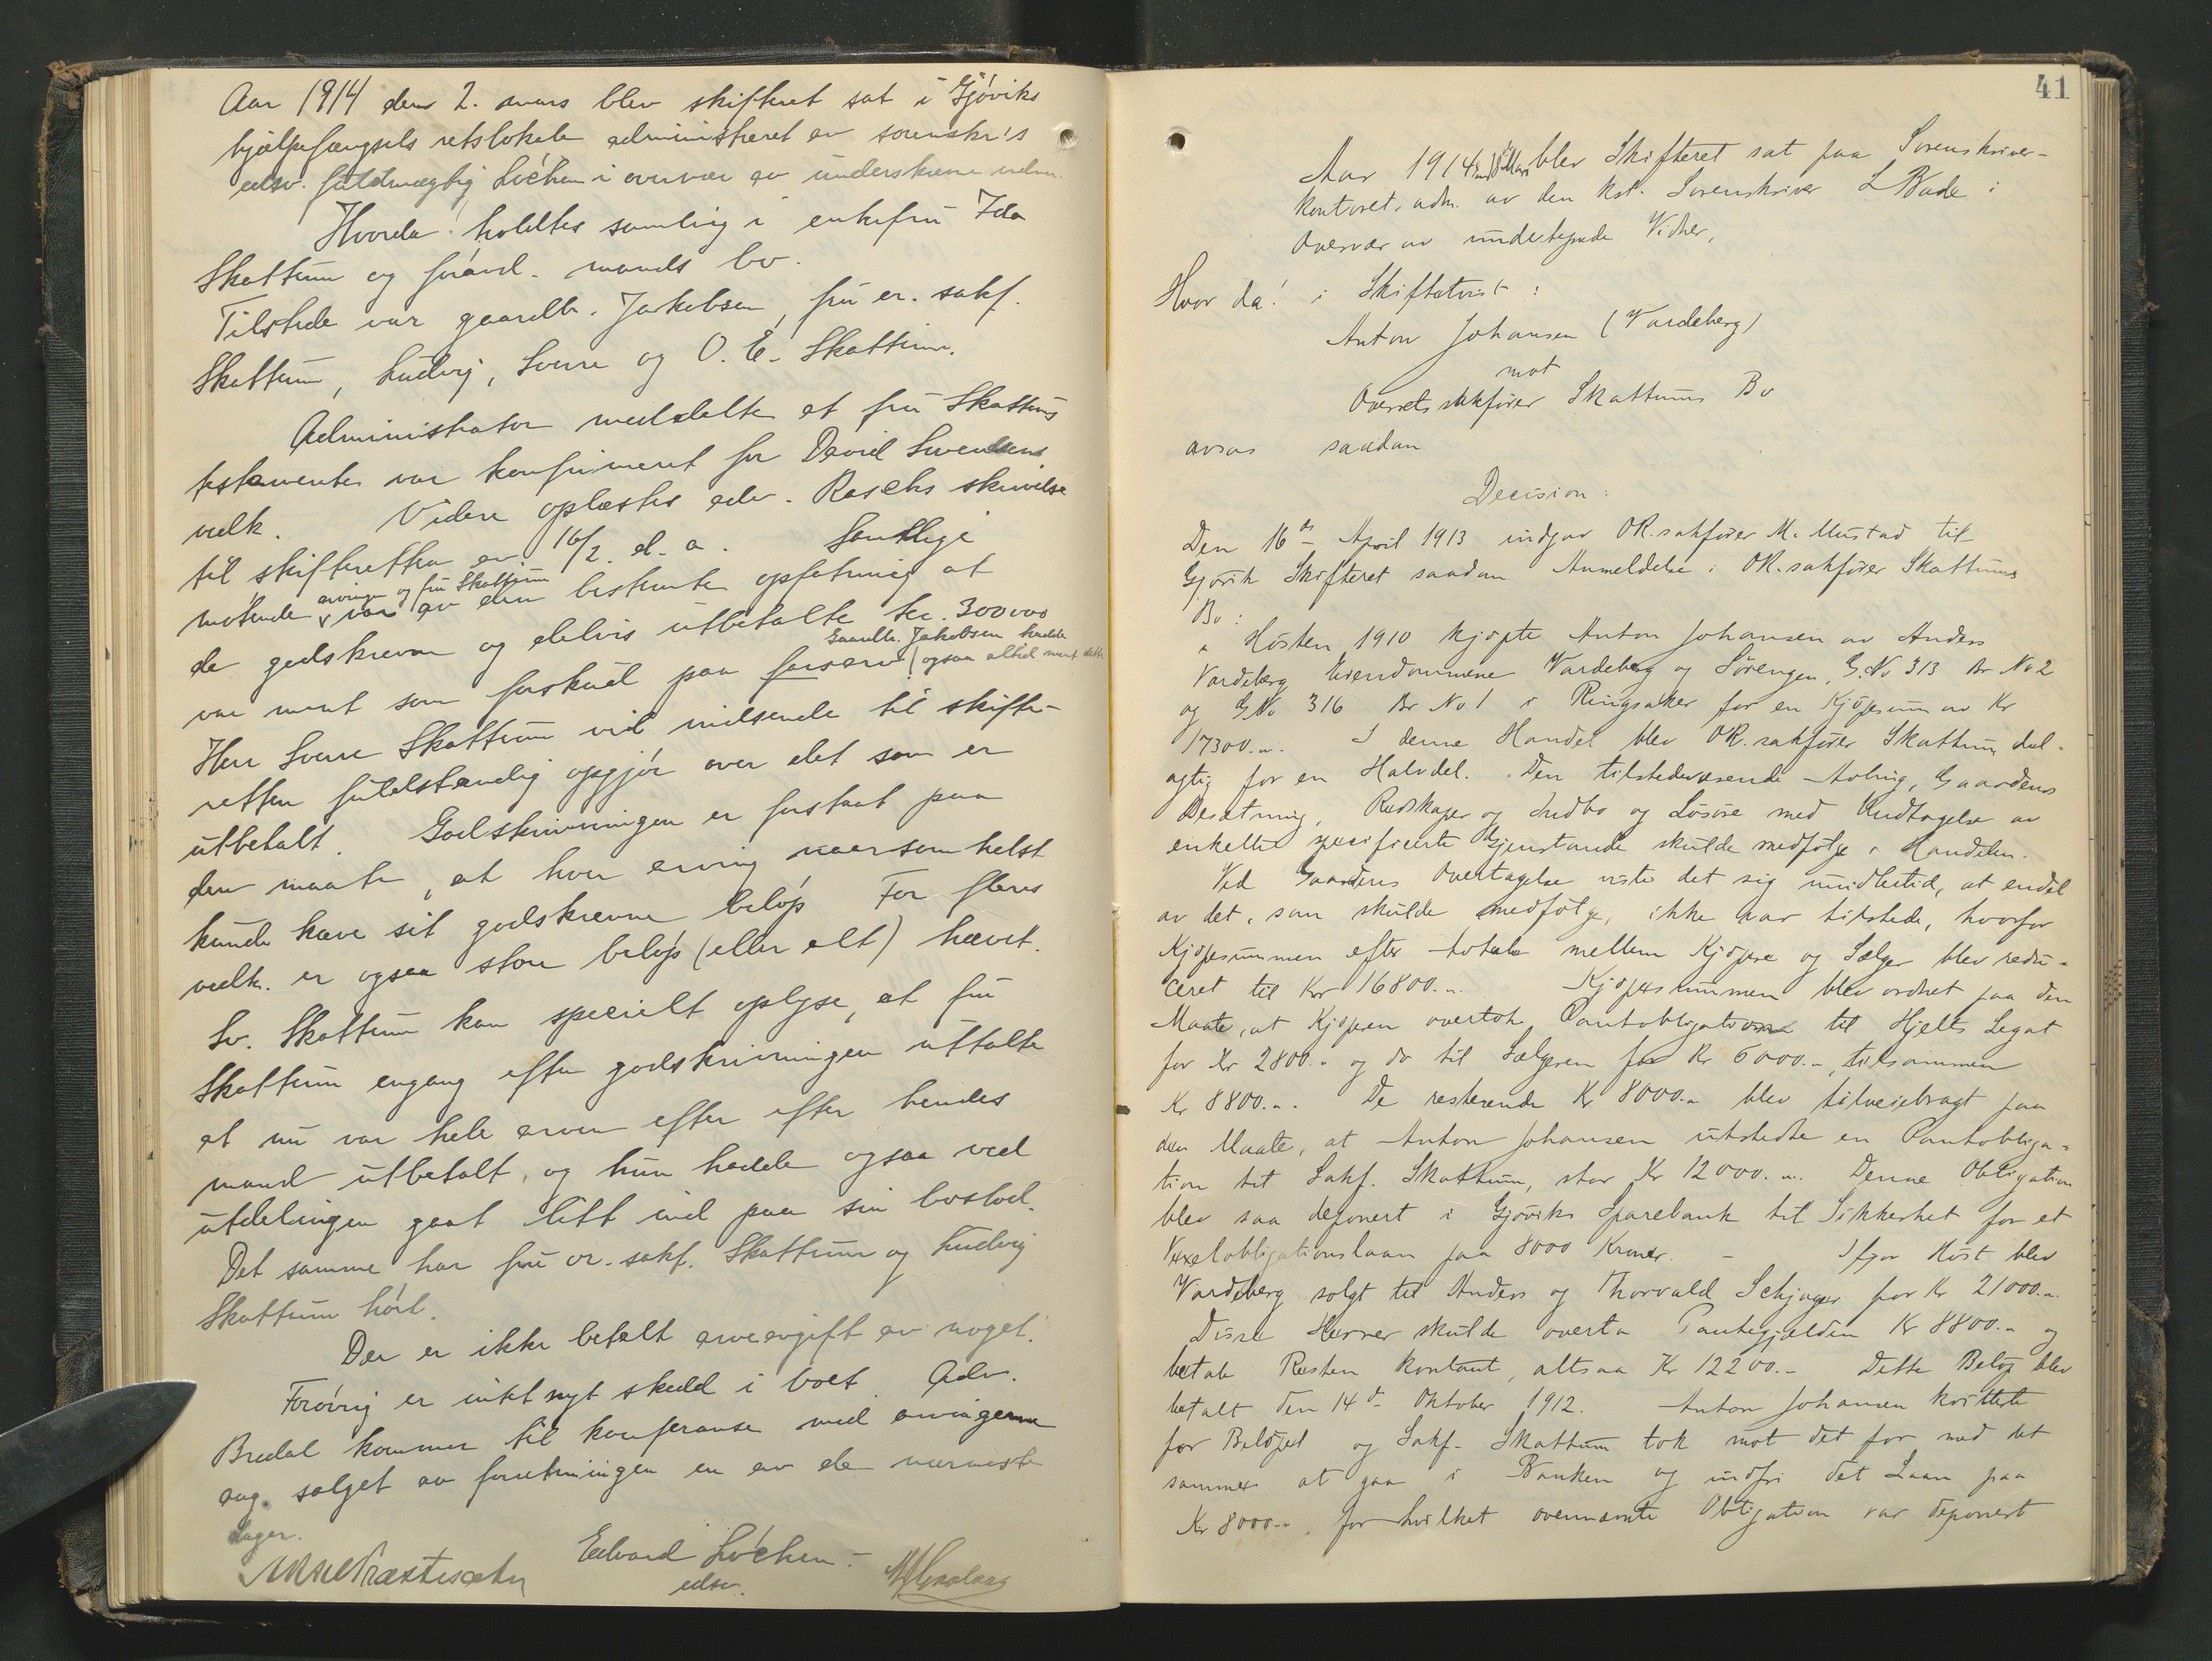 Aar 1914 den 2. mars blev skifteret sat i Gjøviks
hjælpefængsels retslokale administreret av sorenskr's
edsv. fuldmægtig Lóchen i overvær av underskrevne vidner.
Hvorda: holdtes samling i enkefru Ida
Skattum og forávd. mands bo.
Tilstede var gaardb. Jakobsen, fru or. sakf.
Skattum, Ludvig, Sverre og O. E. Skattum.
Administrator meddelte at fru Skattums
testamente var konfirmeret for David Svendsens
vedk. Videre oplæstes adv. Raschs skrivelse
til skifteretten av 16/2 d. a. Samtlige
møtende arvinger og fru Skattum var av den bestemte opfatning at
de godskrevne og delvis utbetalte kr. 300 000
var ment som forskud paa farsarv (Gaardb. Jakobsen hadde ogsaa altid ment dette
Herr Sverre Skattum vil indsende til skifte-
retten fuldstændig opgjór over det som er
utbetalt. Godskrivningen er forstaat paa
den maate, at hver arving naarsomhelst
kunde hæve sit godskrevne beløp. For fleres
vedk. er ogsaa store beløp (eller alt) hævet.
Sv. Skattum kan specielt oplyse, at fru
Skattum engang efter godskrivningen uttalte
at nu var hele arven efter efter hendes
mand utbetalt, og hun hadde ogsaa ved
utdelingen gaat litt ind paa sin boslod.
Det samme har fru or. sakf. Skattum og Ludvig
Skattum hórt.
Der er ikke betalt arveavgift av noget.
Forøvrig er intet nyt skedd i boet. Adv.
Bredal kommer til konferanse med arvingerne
ang. salget av forretningen en av de nærmeste
dager.
Edvard Lóchen
edsv.
41
Aar 1914 blev Skifteret sat paa Sorenskriver-
kontoret, adm. av den kst. Sorenskriver L Bade i
Overvær av undertegnede Vidner,
Hvor da! i Skiftetvist:
Anton Johansen (Vardeberg)
mot
Overretssakfører Skattums Bo
avsas saadan
Decision:
Den 16de April 1913 indgav OR.sakfører M. Mustad til
Gjøvik Skifteret saadan Anmeldelse i OR.sakfører Skattums
Bo:
"Høsten 1910 kjøpte Anton Johansen av Anders
Vardeberg Eiendommene Vardeberg og Sørengen, G.No 313 Br No 2
og GNo 316 Br No 1 i Ringsaker for en Kjøpesum av Kr
17300.-. I denne Handel blev OR.sakfører Skattum del-
agtig for en Halvdel. Den tilstedeværende Avling, Gaardens
Besætning, Redskaper og Indbo og Løsøre med Undtagelse av
enkelte specificerte Gjenstande skulde medfølge i Handelen.
Ved Gaardens Overtagelse viste det sig imidlertid, at endel
av det, som skulde medfølge, ikke var tilstede, hvorfor
Kjøpesummen efter Avtale mellem Kjøpere og Sælger blev redu-
ceret til Kr 16800.-. Kjøpesummen blev ordnet paa den
Maate, at Kjøperen overtok Pantobligationen til Hjelts Legat
for Kr 2800.- og do til Sælgeren for Kr 6000.-, tilsammen
Kr 8800.-. De resterende Kr 8000.- blev tilveiebragt paa
den Maate, at Anton Johansen utstedte en Pantobliga-
tion til Sakf. Skattum, stor Kr 12000.-. Denne Obligation
blev saa deponert i Gjøviks Sparebank til Sikkerhet for et
Vexelobligationslaan paa 8000 Kroner. - Ifjor Høst blev
Vardeberg solgt til Anders og Thorvald Schjager for Kr 21000.-.
Disse Herrer skulde overta Pantegjælden Kr 8800.- og
betale Resten kontant, altsaa Kr 12200.- Dette Beløp blev
betalt den 14de Oktober 1912. Anton Johansen kvitterte
for Beløpet og Sakf. Skattum tok mot det for med det
samme at gaa i Banken og indfri det Laan paa
Kr 8000.-, for hvilket ovennævnte Obligation var deponert